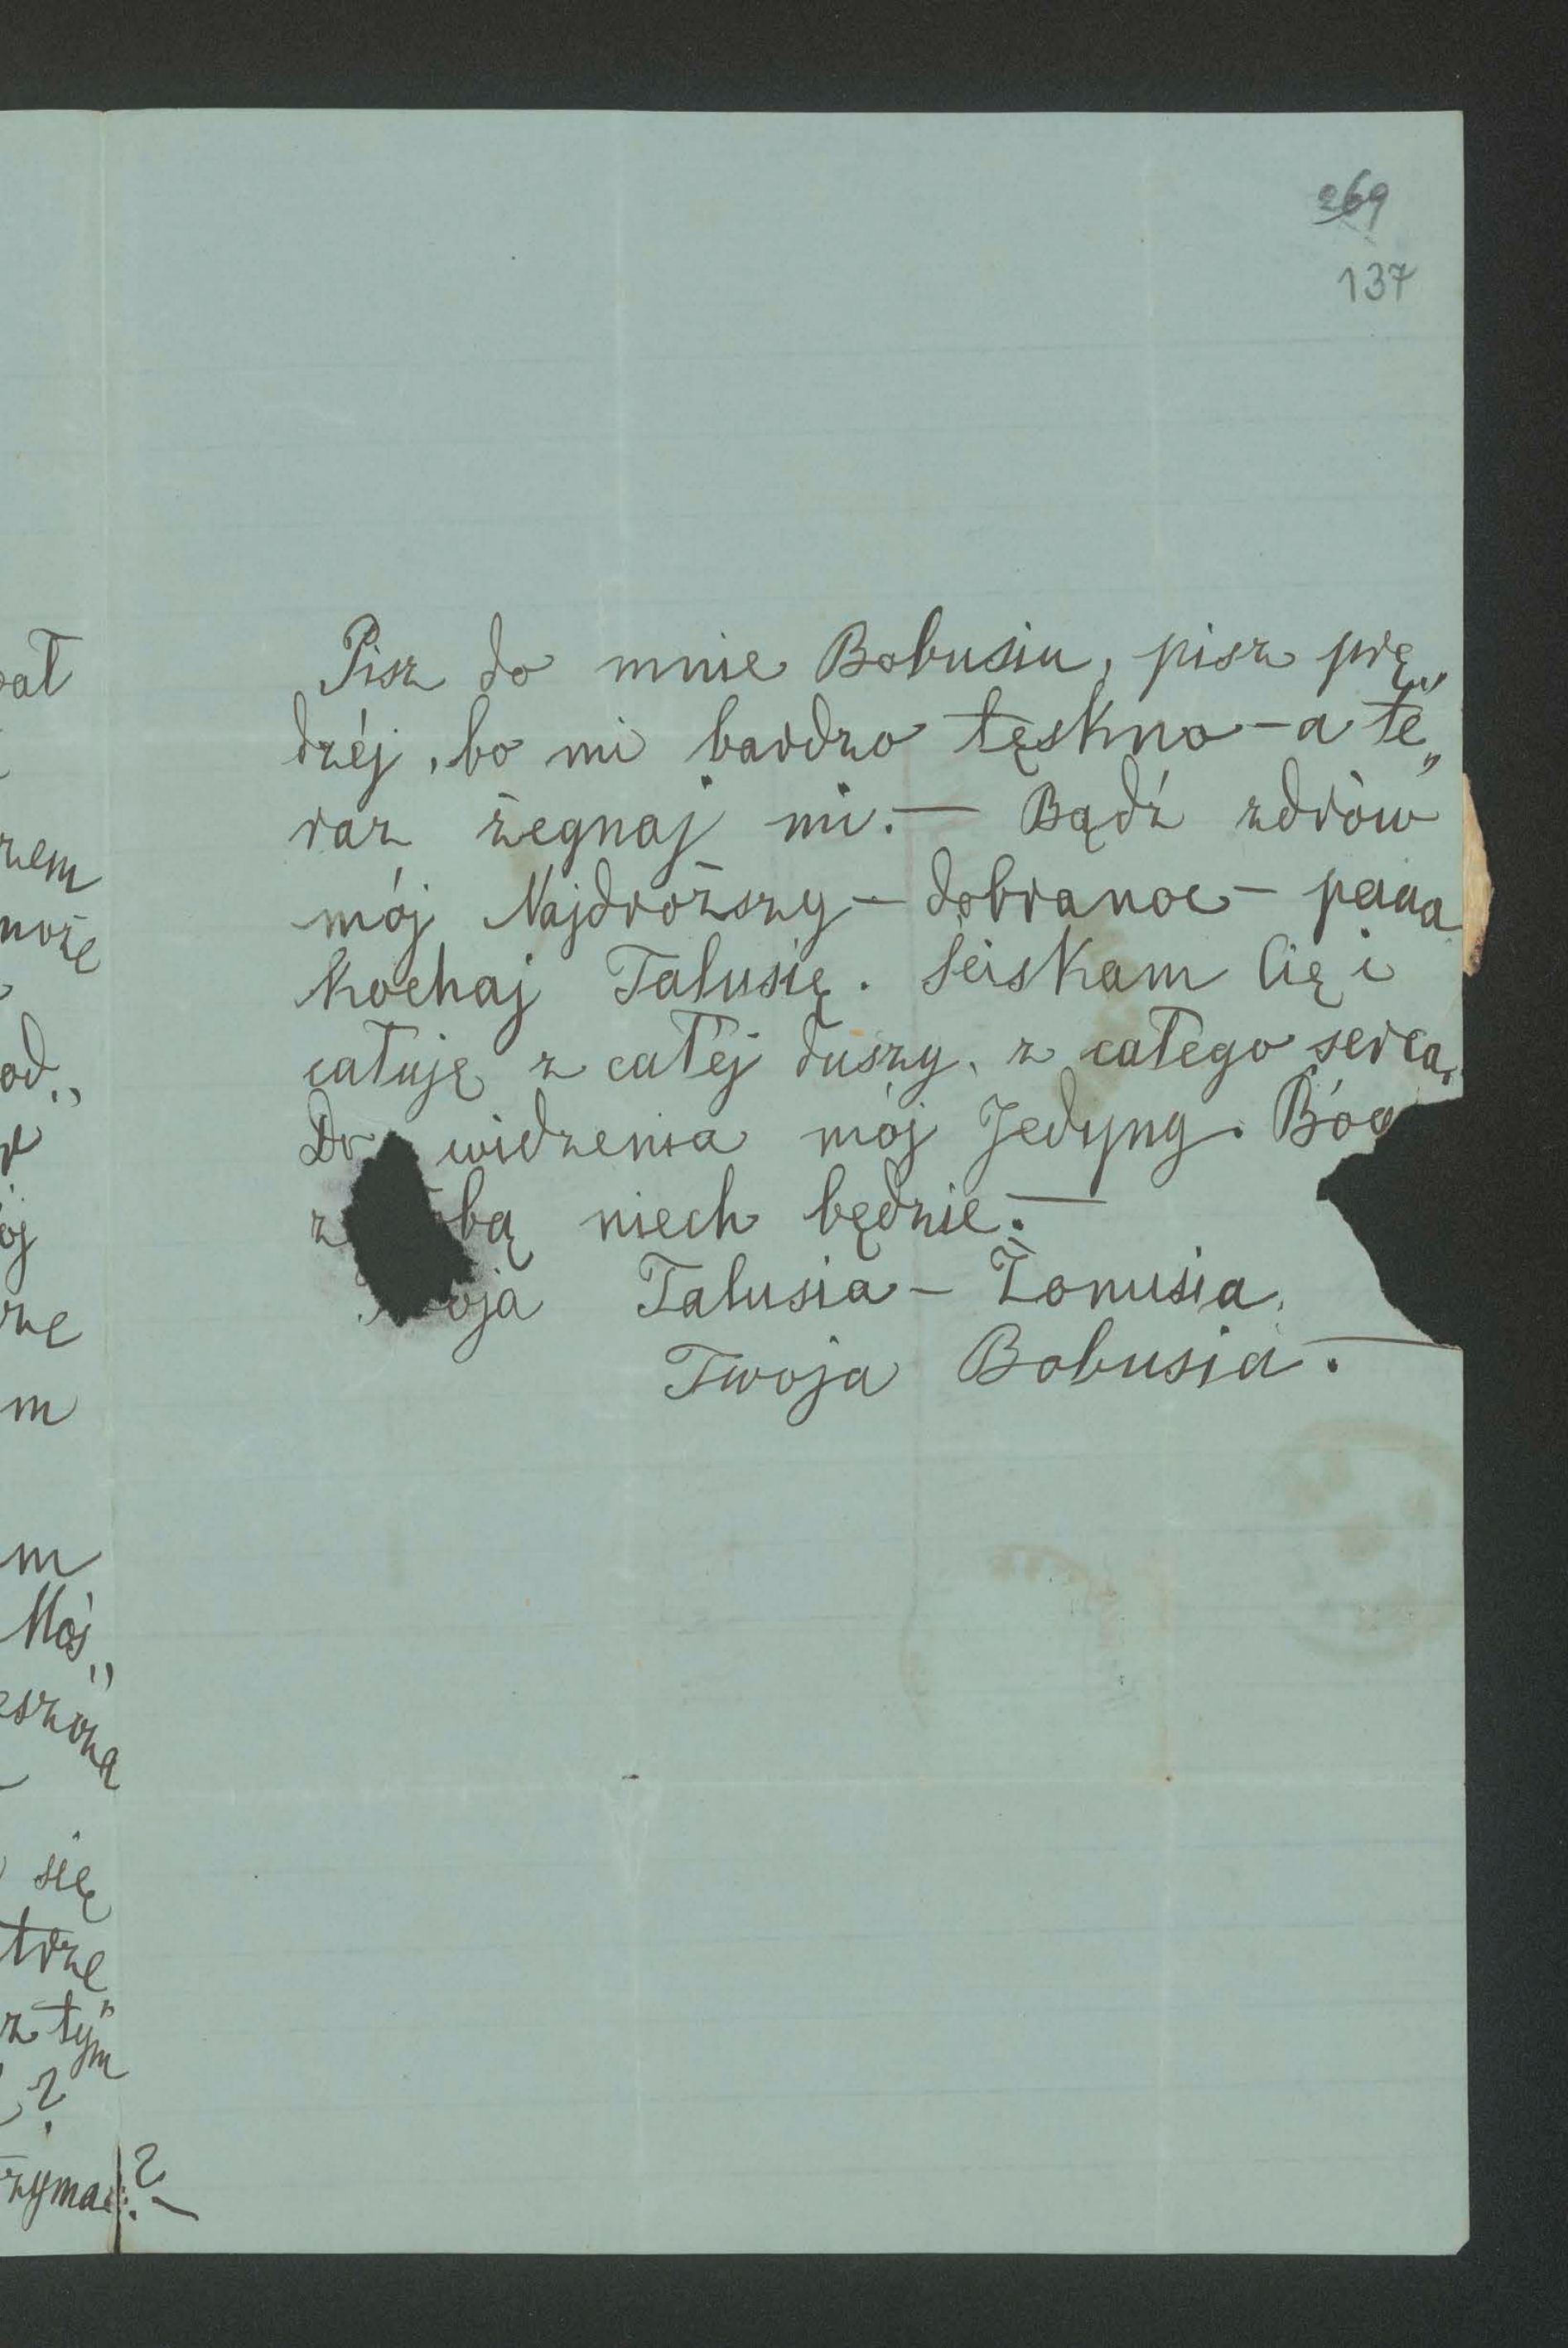 269
137
Pisz do mnie Bobusiu, pisz prę„
dzéj, bo mi bardzo tęskno – a te„
raz żegnaj mi. — Bądź zdrów
mój Najdroższy – dobranoc –
kochaj Talusię. Ściskam Cię i
całuję z całéj duszy, z całego serca,
Do widzenia mój Jedyny. Bóg
z bą niech będzie. —
oja Talusia – Żonusia,
Twoja Bobusia. —
ał
zem
może
od„
ój
rze
m
m
Mój„
eszczę
się
tórzę
z tym
?
zymać? –